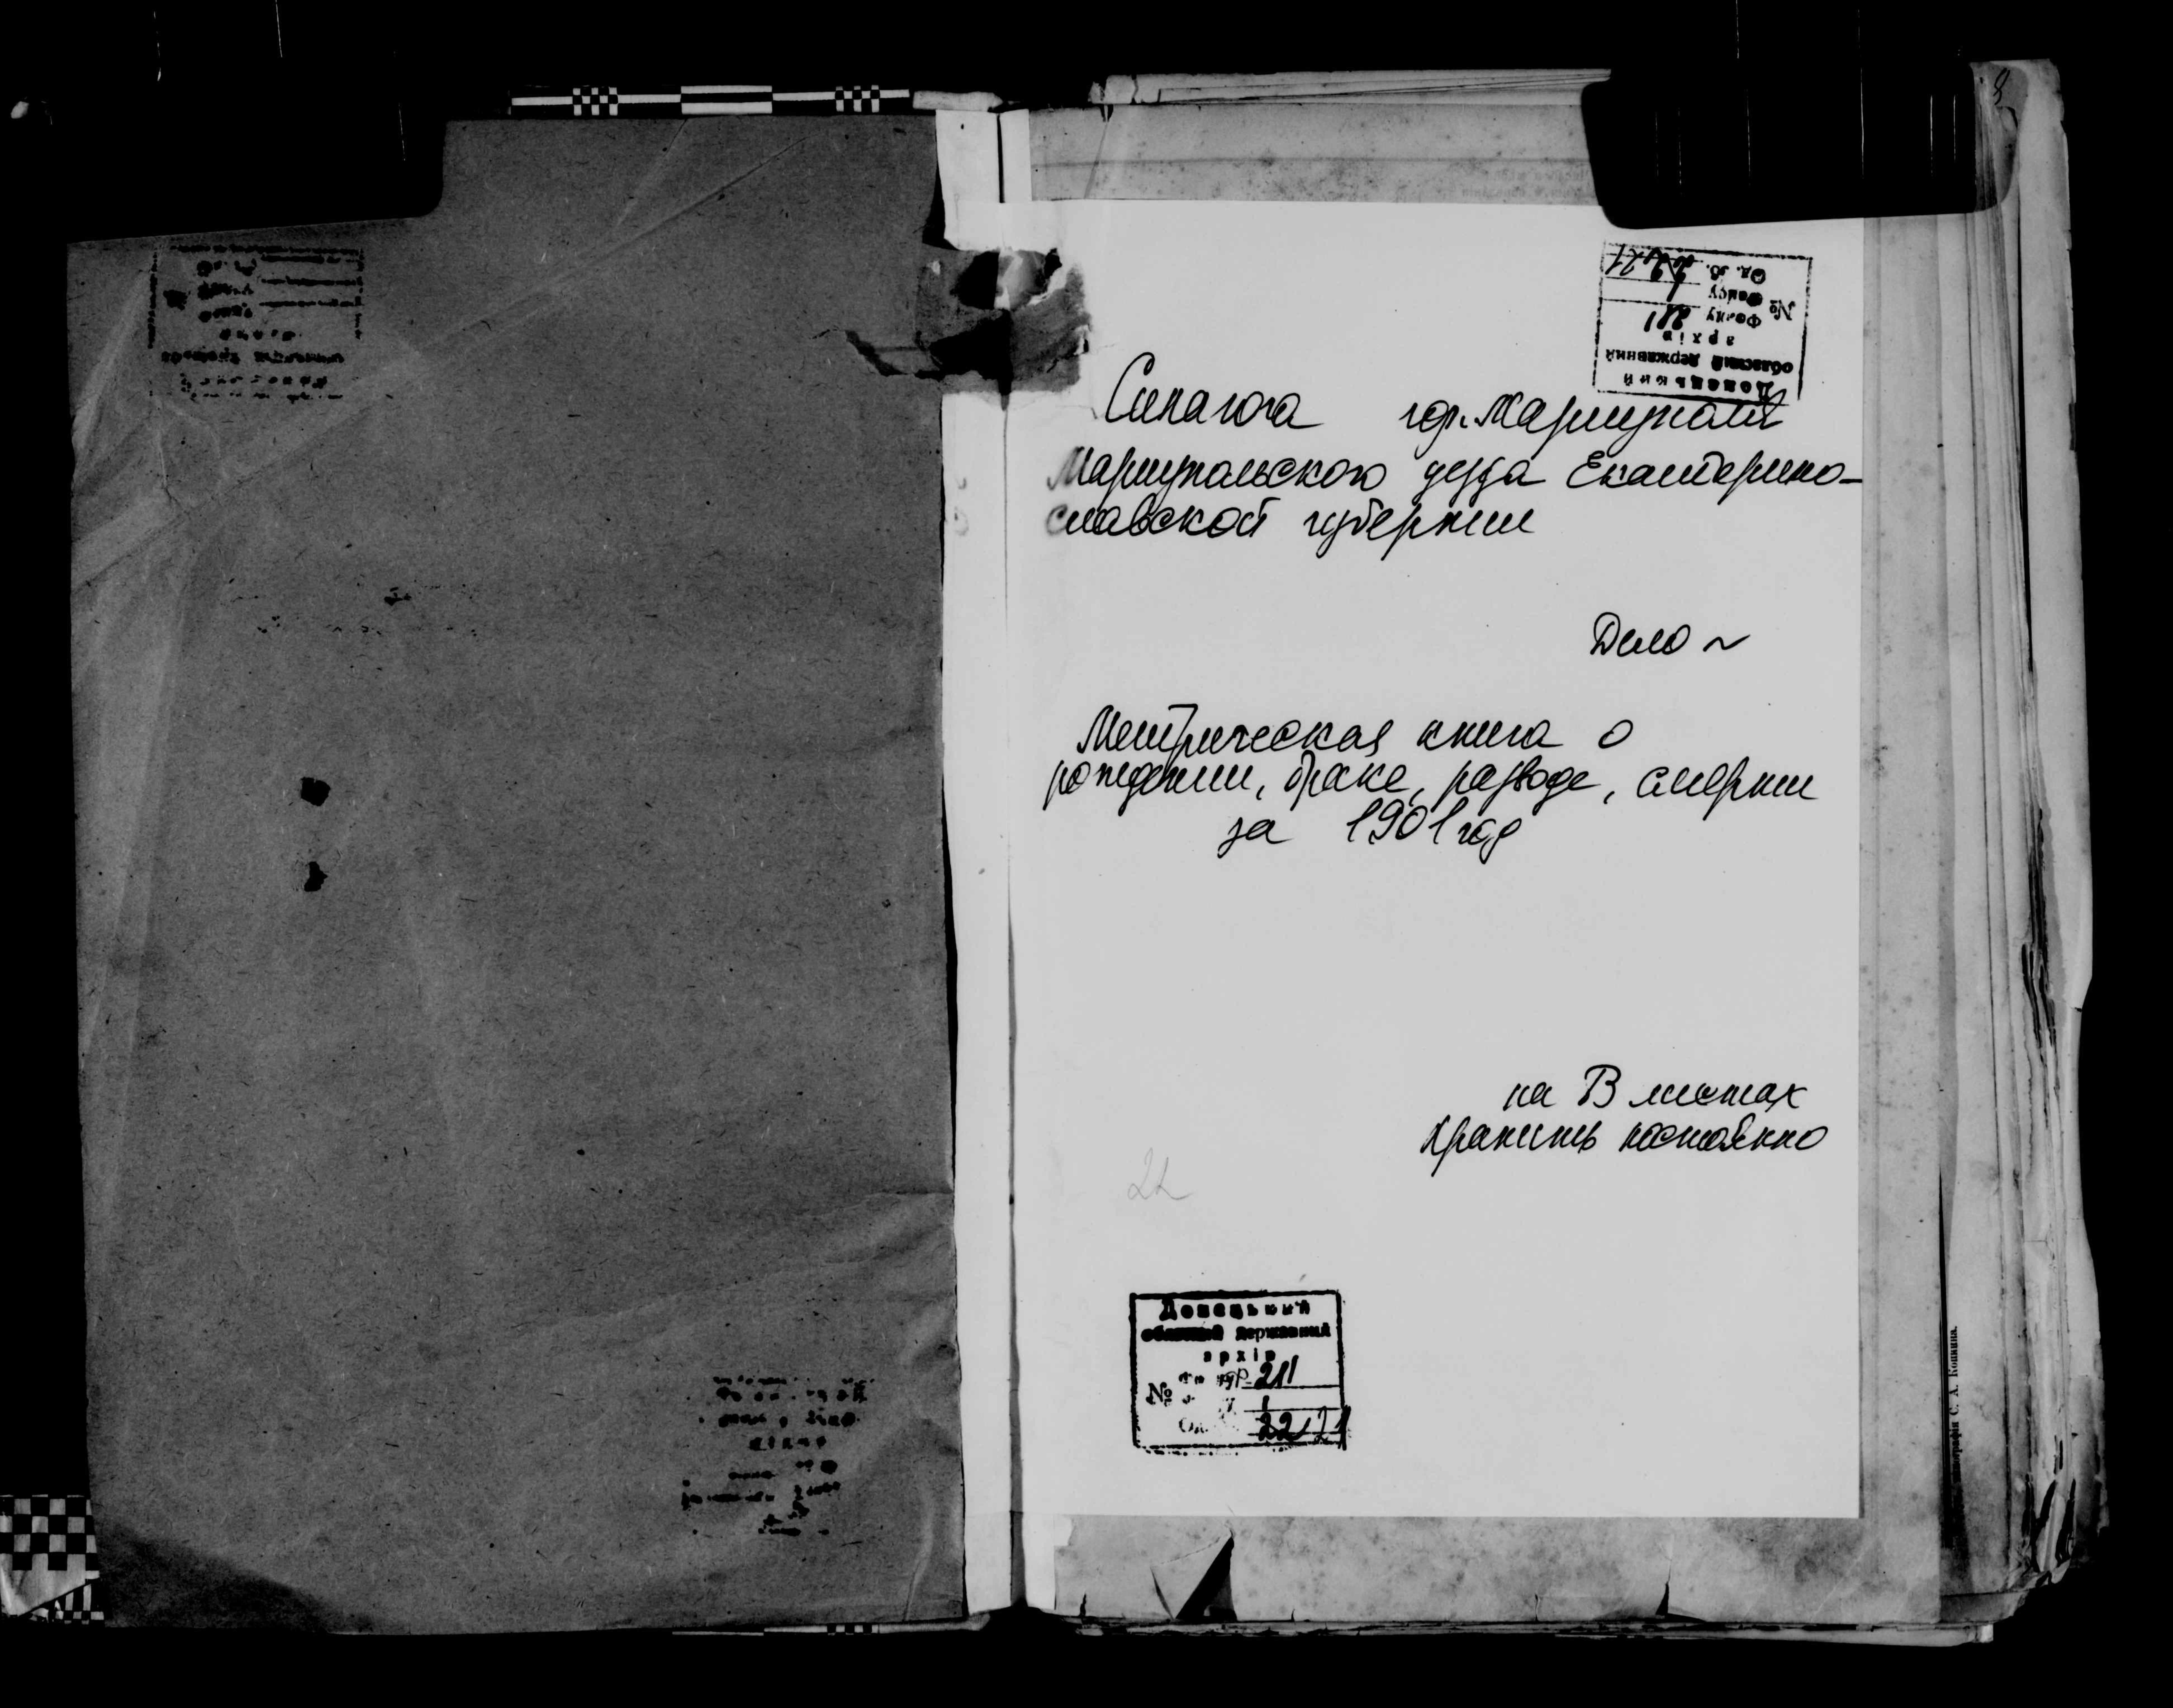 Синагога гор. Мариуполя
Мариупольского уезда Екатерино-
славской губернии
Дело ~
Метрическая книга о
рождении, браке, разводе, смерти
за 1901 год
на В листах
Хранить постоянно
22
Донецький
обласний державний
архів
№ Фонду Р-211
1
22 21
Донецький
обласний державний
архів
№ Фонду 211
Фонду 1
Од. зб. 21
8
С. А. Копкина.